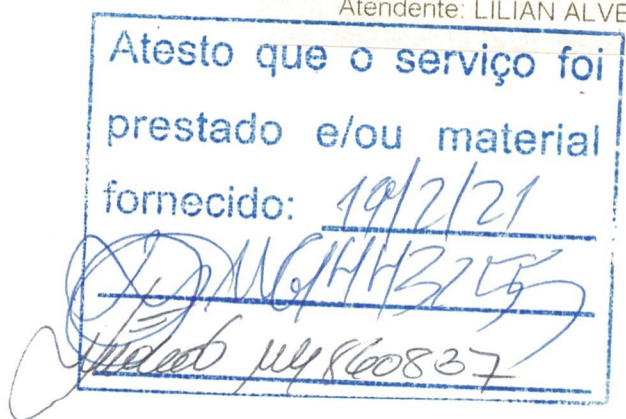 Atendente: LILIAN ALVE
Atesto que o serviço foi
prestado e/ou material
fornecido: 19/2/21
860837